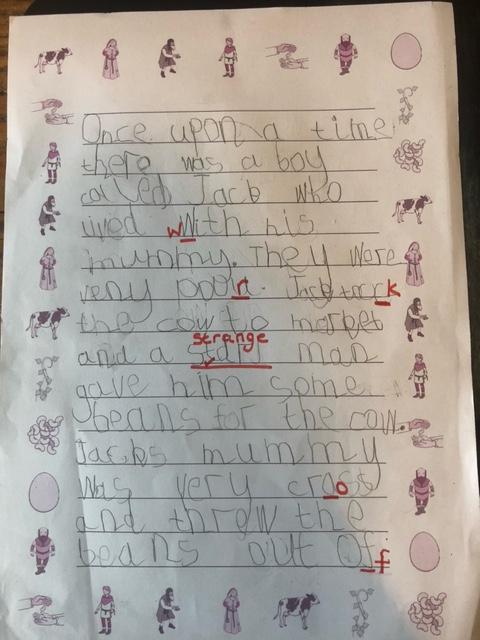 Once upon a time
there was a boy
called Jack who
lived with his
mummy. They were
very poor. Jack took
the cow to market
strange
and a man
gave him some
beans for the cow.
Jacks mummy
Was very cross
and threw the
beans out of